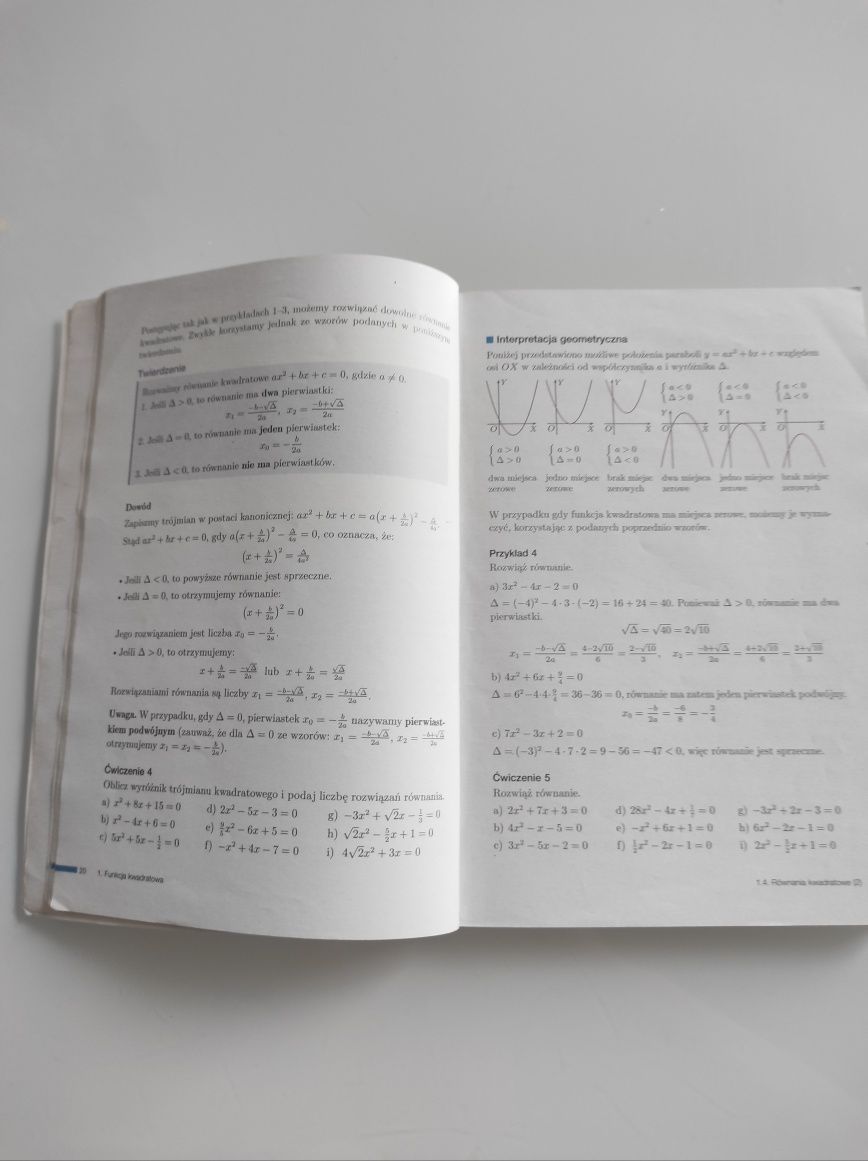 Postępując tak jak w przykładach 1–3, możemy rozwiązać dowolne równanie
kwadratowe. Zwykle korzystamy jednak ze wzorów podanych w poniższym
twierdzeniu.
Twierdzenie
Rozważmy równanie kwadratowe ax² + bx + c = 0, gdzie a ≠ 0.
1. Jeśli Δ > 0, to równanie ma dwa pierwiastki:
x₁ = (−b−√Δ)/2a, x₂ = (−b+√Δ)/2a
2. Jeśli Δ = 0, to równanie ma jeden pierwiastek:
x₀ = −b/2a
3. Jeśli Δ < 0, to równanie nie ma pierwiastków.
Dowód
Zapiszmy trójmian w postaci kanonicznej: ax² + bx + c = a(x + b/2a)² − Δ/4a
Stąd ax² + bx + c = 0, gdy a(x + b/2a)² − Δ/4a = 0, co oznacza, że:
(x + b/2a)² = Δ/4a²
• Jeśli Δ < 0, to powyższe równanie jest sprzeczne.
• Jeśli Δ = 0, to otrzymujemy równanie:
(x + b/2a)² = 0
Jego rozwiązaniem jest liczba x₀ = −b/2a.
• Jeśli Δ > 0, to otrzymujemy:
x + b/2a = −√Δ/2a lub x + b/2a = √Δ/2a
Rozwiązaniami równania są liczby x₁ = (−b−√Δ)/2a, x₂ = (−b+√Δ)/2a.
Uwaga. W przypadku, gdy Δ = 0, pierwiastek x₀ = −b/2a nazywamy pierwiast-
kiem podwójnym (zauważ, że dla Δ = 0 ze wzorów: x₁ = (−b−√Δ)/2a, x₂ = (−b+√Δ)/2a
otrzymujemy x₁ = x₂ = −b/2a).
Ćwiczenie 4
Oblicz wyróżnik trójmianu kwadratowego i podaj liczbę rozwiązań równania.
a) x² + 8x + 15 = 0 d) 2x² − 5x − 3 = 0 g) −3x² + √2x − 1/3 = 0
b) x² − 4x + 6 = 0 e) 9/5x² − 6x + 5 = 0 h) √2x² − 5/2x + 1 = 0
c) 5x² + 5x − 1/2 = 0 f) −x² + 4x − 7 = 0 i) 4√2x² + 3x = 0
20 1. Funkcja kwadratowa
Interpretacja geometryczna
Poniżej przedstawiono możliwe położenia paraboli y = ax² + bx + c względem
osi OX w zależności od współczynnika a i wyróżnika Δ.
Y Y Y { a < 0 Δ > 0 { a < 0 Δ = 0 { a < 0 Δ < 0
O X O X O X Y O X Y O X Y O X
{ a > 0 Δ > 0 { a > 0 Δ = 0 { a > 0 Δ < 0
dwa miejsca jedno miejsce brak miejsc dwa miejsca jedno miejsce brak miejsc
zerowe zerowe zerowych zerowe zerowe zerowych
W przypadku gdy funkcja kwadratowa ma miejsca zerowe, możemy je wyzna-
czyć, korzystając z podanych poprzednio wzorów.
Przykład 4
Rozwiąż równanie.
a) 3x² − 4x − 2 = 0
Δ = (−4)² − 4 · 3 · (−2) = 16 + 24 = 40. Ponieważ Δ > 0, równanie ma dwa
pierwiastki.
√Δ = √40 = 2√10
x₁ = (−b−√Δ)/2a = (4−2√10)/6 = (2−√10)/3, x₂ = (−b+√Δ)/2a = (4+2√10)/6 = (2+√10)/3
b) 4x² + 6x + 9/4 = 0
Δ = 6² − 4·4·9/4 = 36 − 36 = 0, równanie ma zatem jeden pierwiastek podwójny.
x₀ = −b/2a = −6/8 = −3/4
c) 7x² − 3x + 2 = 0
Δ = (−3)² − 4 · 7 · 2 = 9 − 56 = −47 < 0, więc równanie jest sprzeczne.
Ćwiczenie 5
Rozwiąż równanie.
a) 2x² + 7x + 3 = 0 d) 28x² − 4x + 1/7 = 0 g) −3x² + 2x − 3 = 0
b) 4x² − x − 5 = 0 e) −x² + 6x + 1 = 0 h) 6x² − 2x − 1 = 0
c) 3x² − 5x − 2 = 0 f) 1/2x² − 2x − 1 = 0 i) 2x² − 5/2x + 1 = 0
1.4. Równania kwadratowe (2)